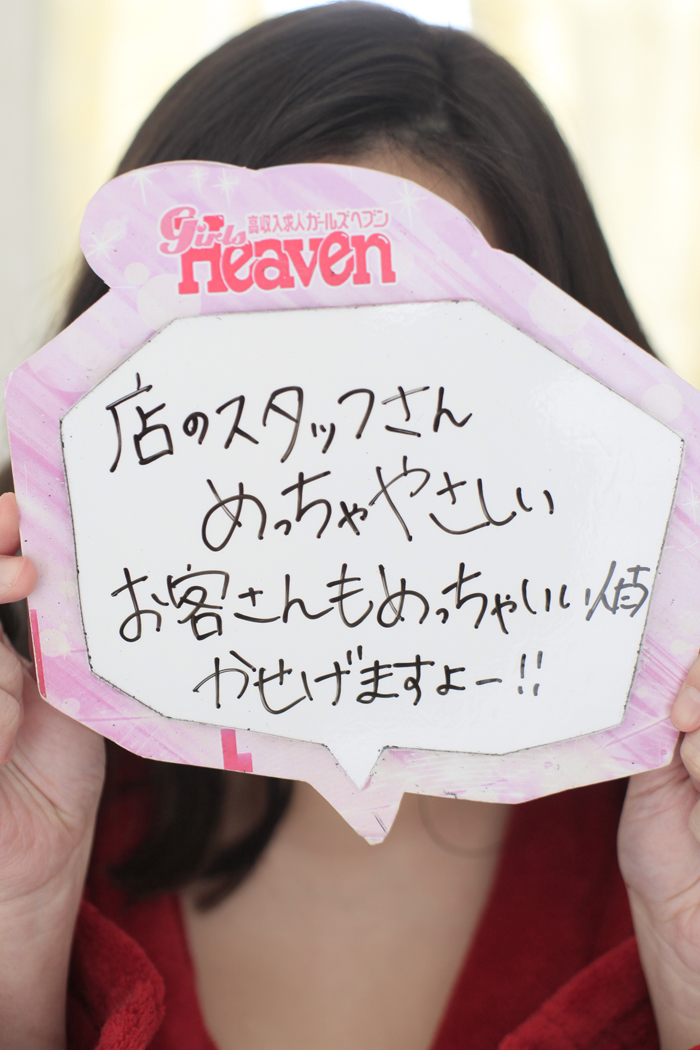 高収入求人ガールズヘブン
Girls
Heaven
店のスタッフさん
めっちゃやさしい
お客さんもめっちゃいい
かせげますよー!!